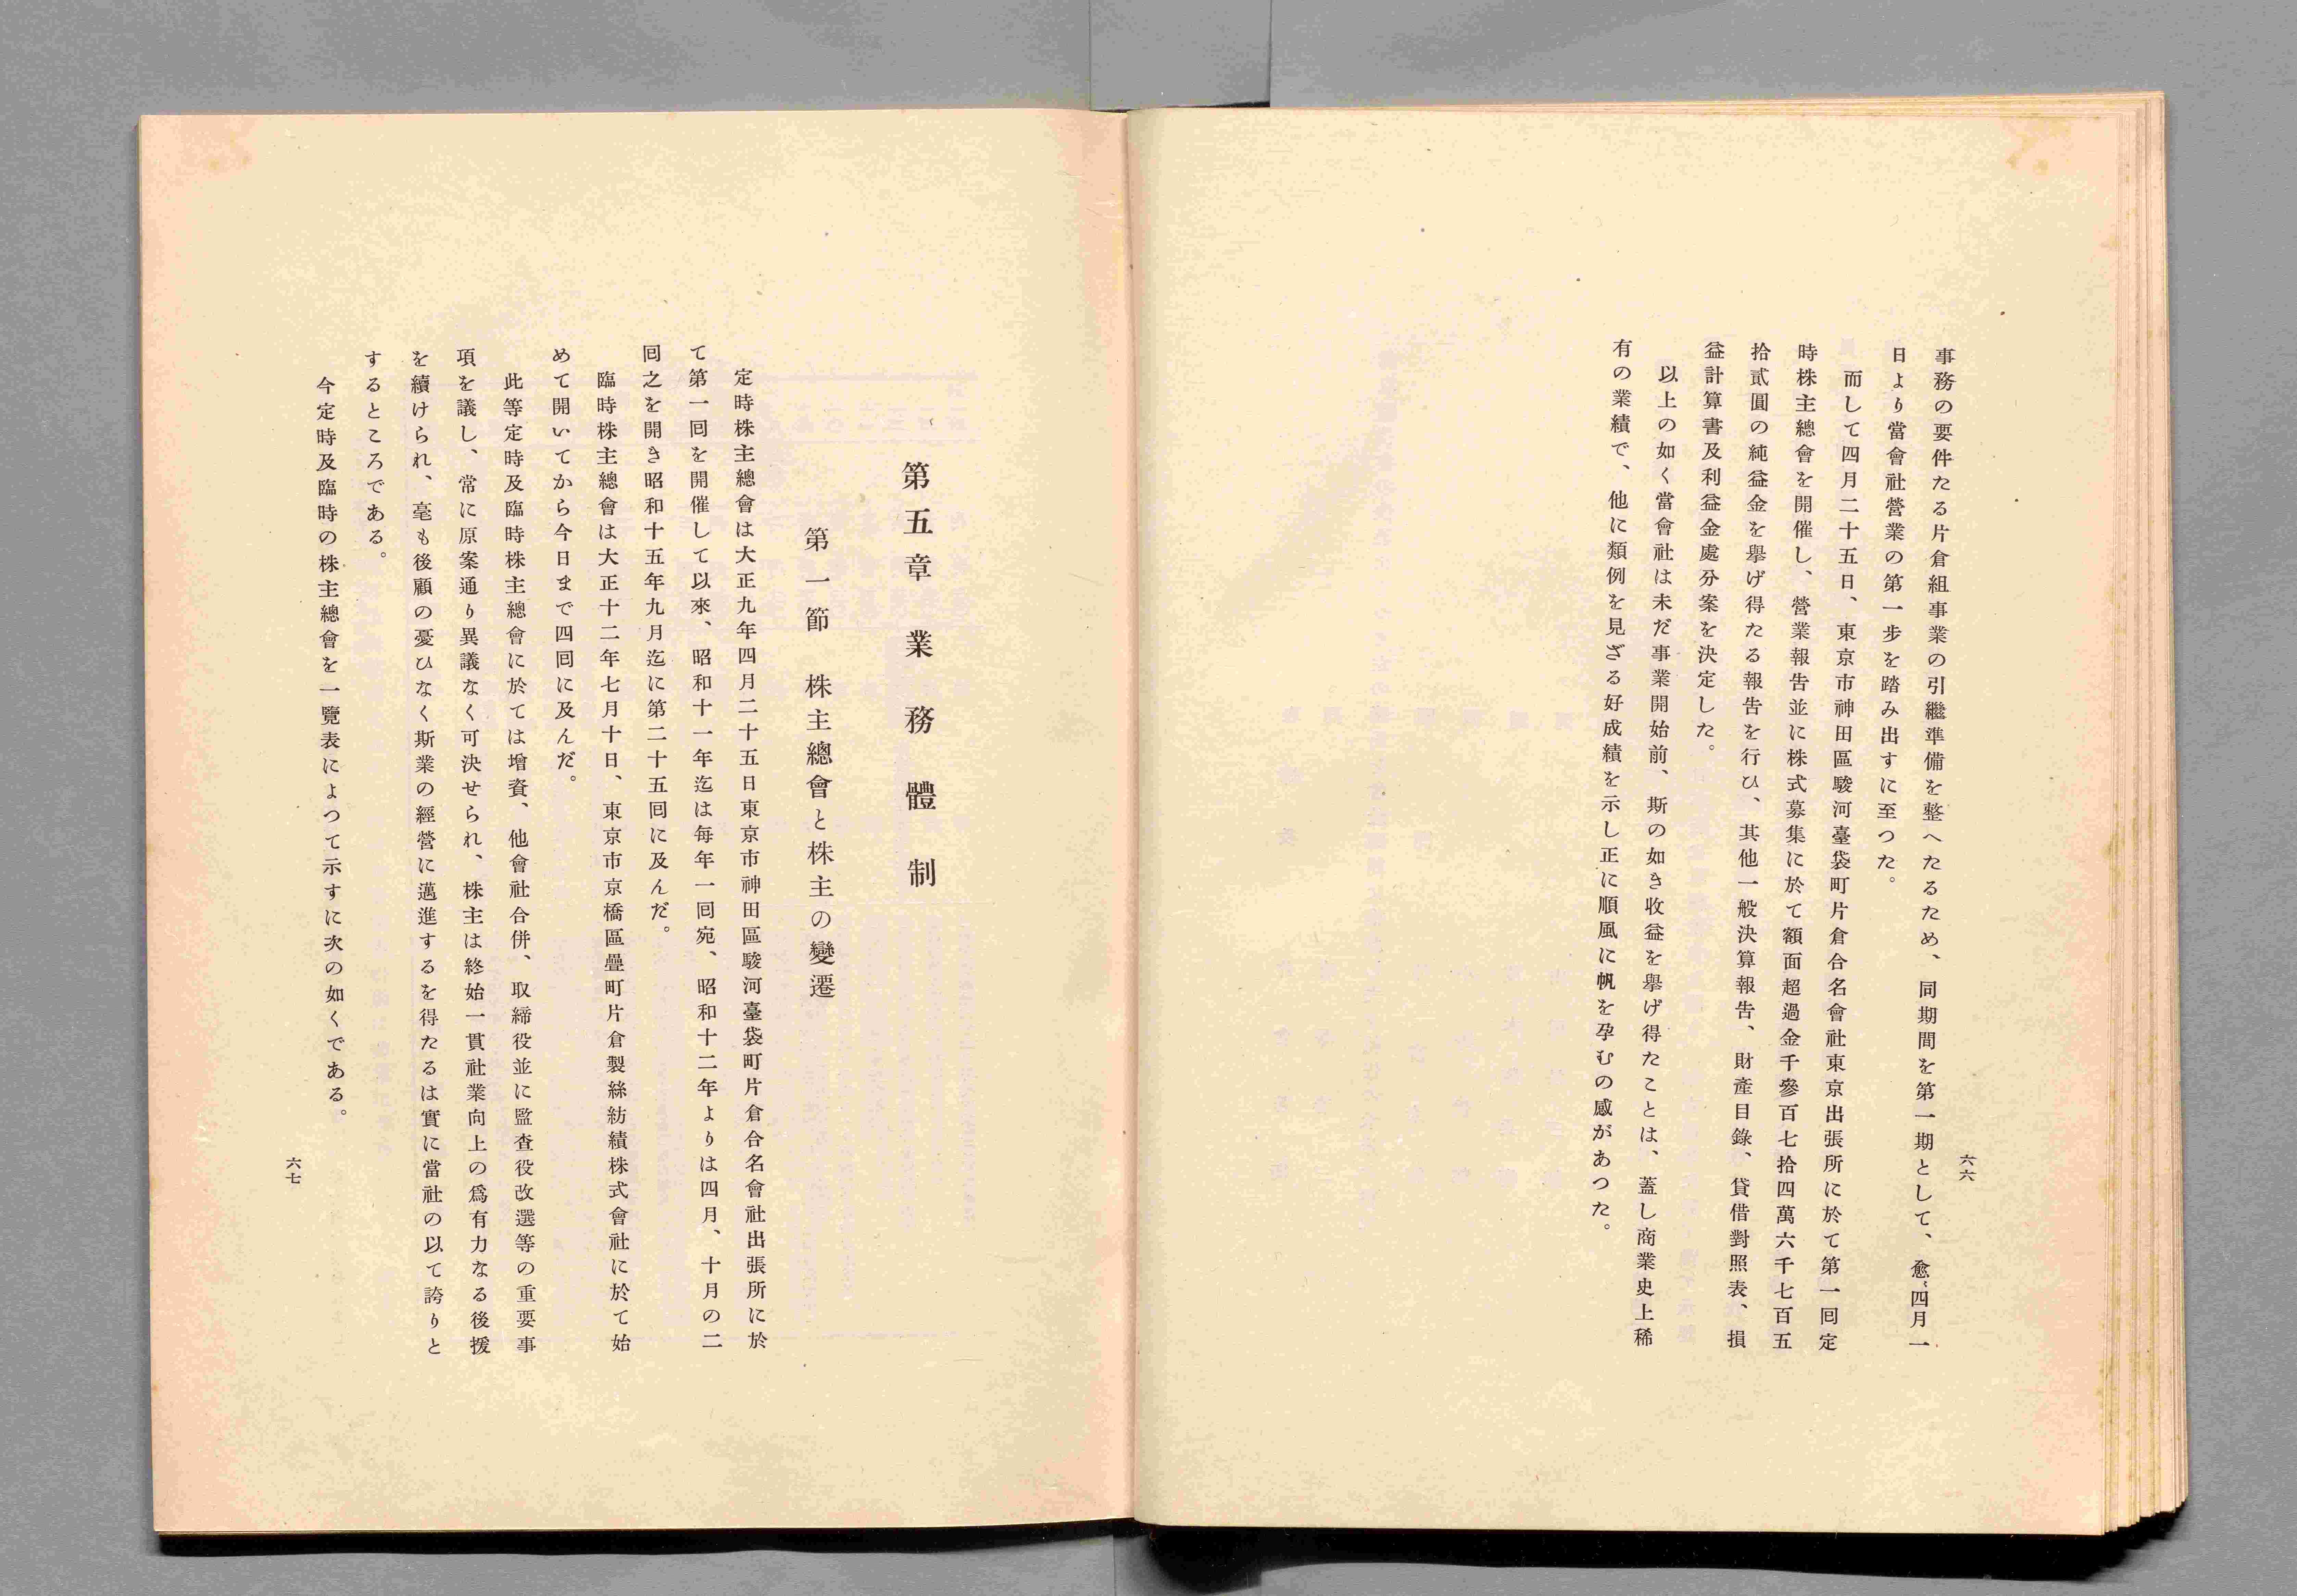 事務の要件たる片倉組事業の引繼準備を整へたるため、同期間を第一期として、愈〻四月一
日より當會社營業の第一步を踏み出すに至つた。
而して四月二十五日、東京市神田區駿河臺袋町片倉合名會社東京出張所に於て第一囘定
時株主總會を開催し、營業報告並に株式募集に於て額面超過金千參百七拾四萬六千七百五
拾貳圓の純益金を擧げ得たる報告を行ひ、其他一般決算報告、財產目錄、貸借對照表、損
益計算書及利益金處分案を決定した。
以上の如く當會社は未だ事業開始前、斯の如き收益を擧げ得たことは、蓋し商業史上稀
有の業績で、他に類例を見ざる好成績を示し正に順風に帆を孕むの感があつた。
六六
第五章 業務體制
第一節 株主總會と株主の變遷
定時株主總會は大正九年四月二十五日東京市神田區駿河臺袋町片倉合名會社出張所に於
て第一囘を開催して以來、昭和十一年迄は每年一囘宛、昭和十二年よりは四月、十月の二
囘之を開き昭和十五年九月迄に第二十五囘に及んだ。
臨時株主總會は大正十二年七月十日、東京市京橋區疊町片倉製絲紡績株式會社に於て始
めて開いてから今日まで四囘に及んだ。
此等定時及臨時株主總會に於ては增資、他會社合併、取締役並に監查役改選等の重要事
項を議し、常に原案通り異議なく可決せられ、株主は終始一貫社業向上の爲有力なる後援
を續けられ、毫も後顧の憂ひなく斯業の經營に邁進するを得たるは實に當社の以て誇りと
するところである。
今定時及臨時の株主總會を一覽表によつて示すに次の如くである。
六七